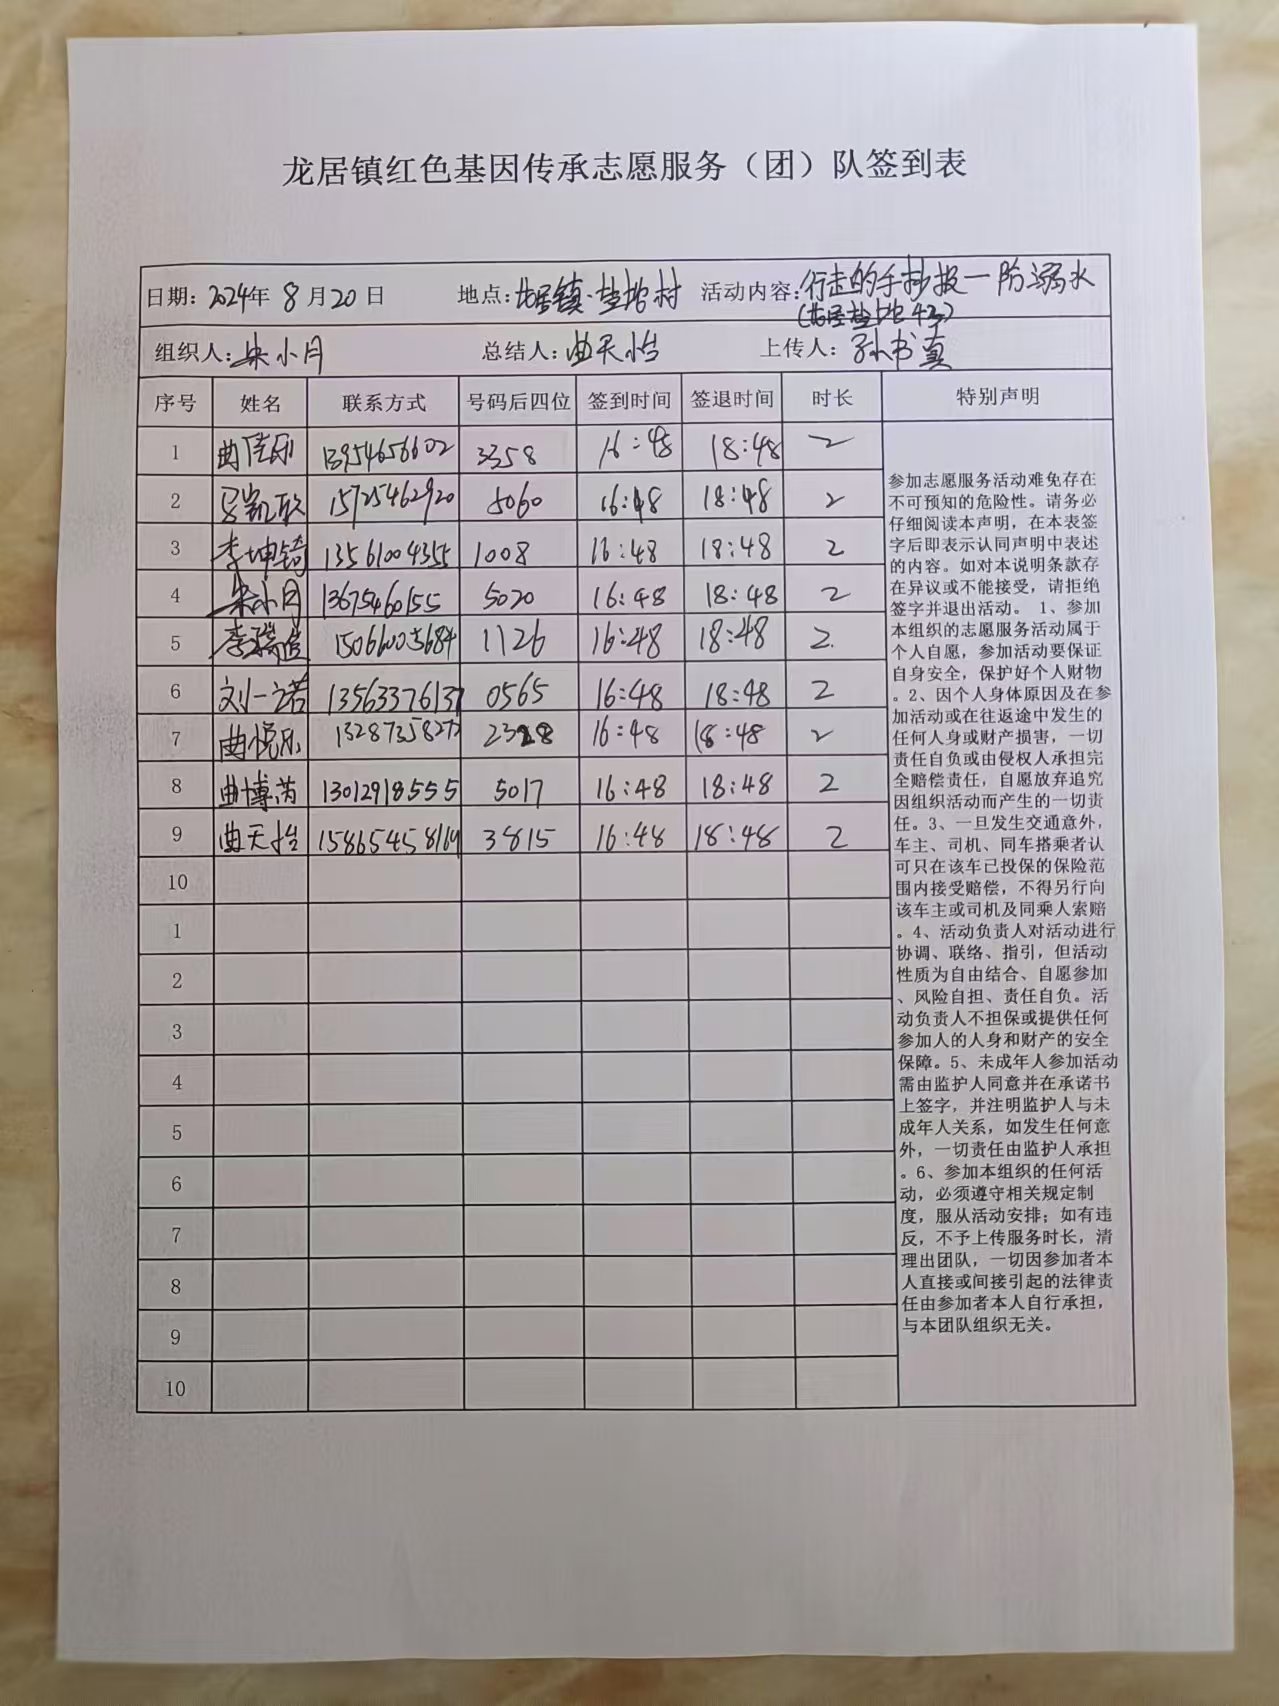 龙居镇红色基因传承志愿服务（团）队签到表
日期：2024年 8月20日 地点：龙居镇·盐垛村 活动内容：行走的手抄报—防溺水
组织人：朱小月 总结人：曲天怡 上传人：孙书真
序号 姓名 联系方式 号码后四位 签到时间 签退时间 时长 特别声明
1 13954656602 3358 16:48 18:48 2
2 15725462920 5060 16:48 18:48 2
3 李坤锜 13561004355 1008 16:48 18:48 2
4 朱小月 13675460155 5020 16:48 18:48 2
5 15066005684 1126 16:48 18:48 2
6 刘一诺 13563376137 0565 16:48 18:48 2
7 曲悦乐 13287358272 2328 16:48 18:48 2
8 曲博芮 13012918555 5017 16:48 18:48 2
9 曲天怡 15865458164 3815 16:48 18:48 2
10
1
2
3
4
5
6
7
8
9
10
参加志愿服务活动难免存在
不可预知的危险性。请务必
仔细阅读本声明，在本表签
字后即表示认同声明中表述
的内容。如对本说明条款存
在异议或不能接受，请拒绝
签字并退出活动。 1、参加
本组织的志愿服务活动属于
个人自愿，参加活动要保证
自身安全，保护好个人财物
。2、因个人身体原因及在参
加活动或在往返途中发生的
任何人身或财产损害，一切
责任自负或由侵权人承担完
全赔偿责任，自愿放弃追究
因组织活动而产生的一切责
任。3、一旦发生交通意外，
车主、司机、同车搭乘者认
可只在该车已投保的保险范
围内接受赔偿，不得另行向
该车主或司机及同乘人索赔
。4、活动负责人对活动进行
协调、联络、指引，但活动
性质为自由结合、自愿参加
、风险自担、责任自负。活
动负责人不担保或提供任何
参加人的人身和财产的安全
保障。5、未成年人参加活动
需由监护人同意并在承诺书
上签字，并注明监护人与未
成年人关系，如发生任何意
外，一切责任由监护人承担
。6、参加本组织的任何活
动，必须遵守相关规定制
度，服从活动安排；如有违
反，不予上传服务时长，清
理出团队，一切因参加者本
人直接或间接引起的法律责
任由参加者本人自行承担，
与本团队组织无关。